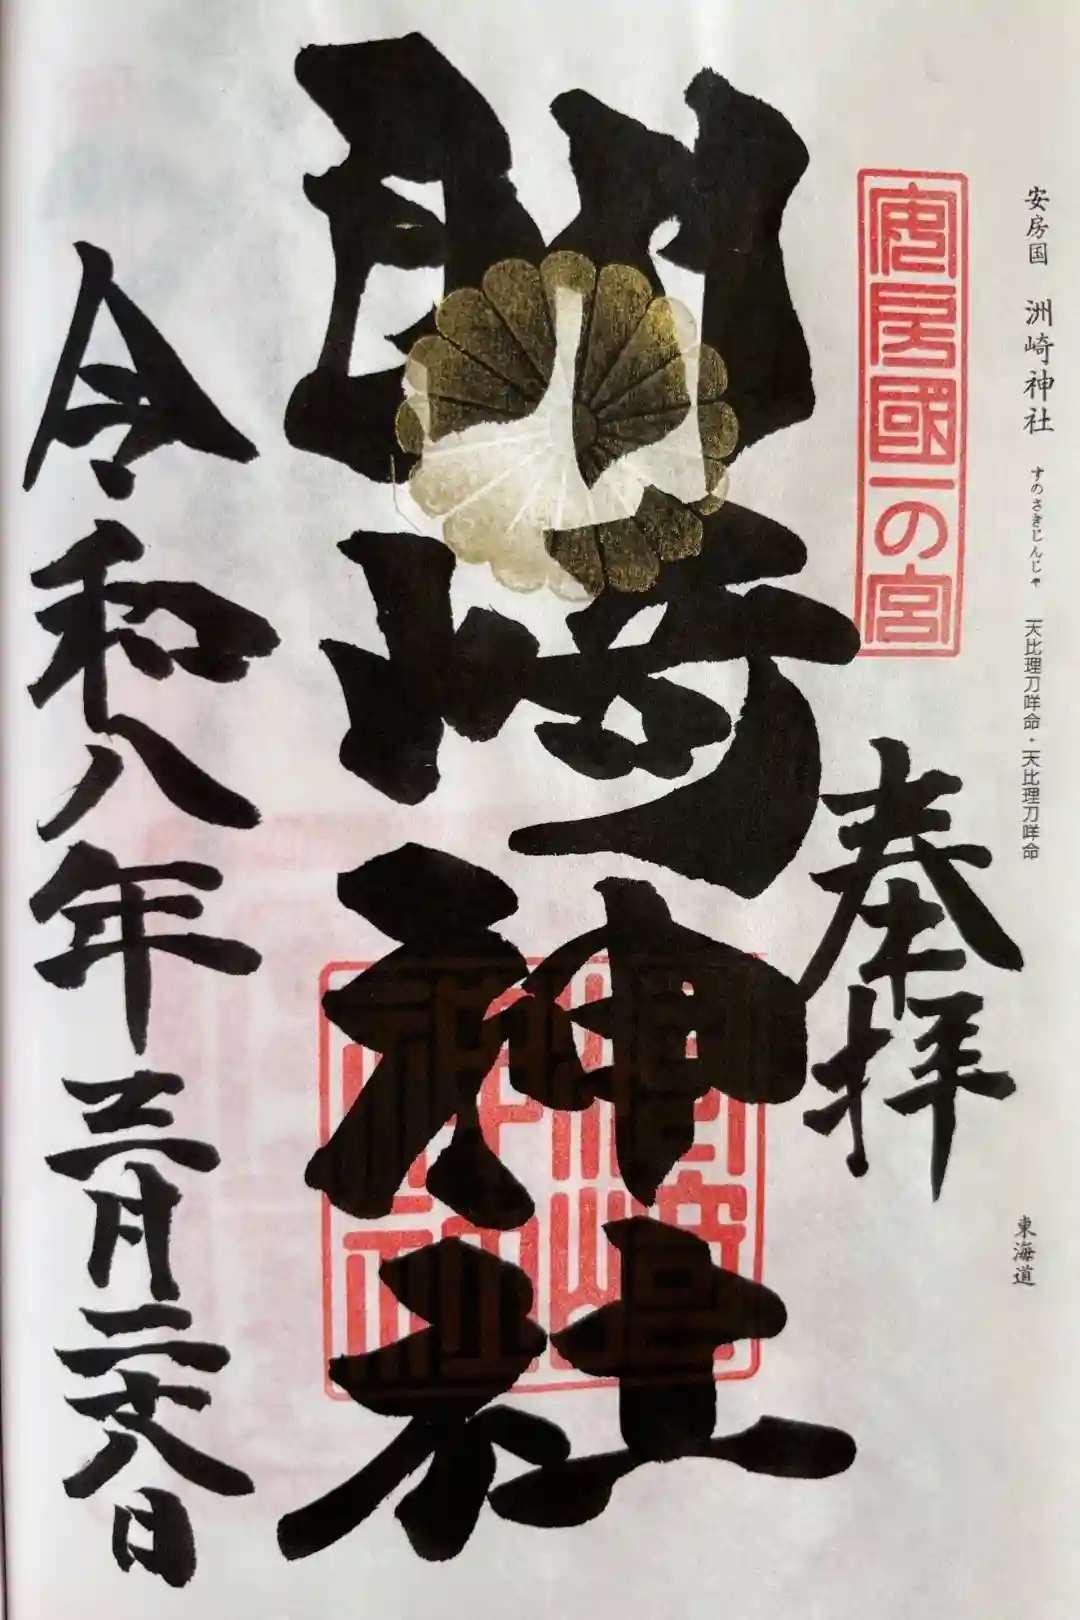 安房国 洲崎神社 すのさきじんじゃ 天比理刀咩命・天比理刀咩命 東海道
安房國一の宮
奉拝
洲崎神社
令和八年三月二十八日